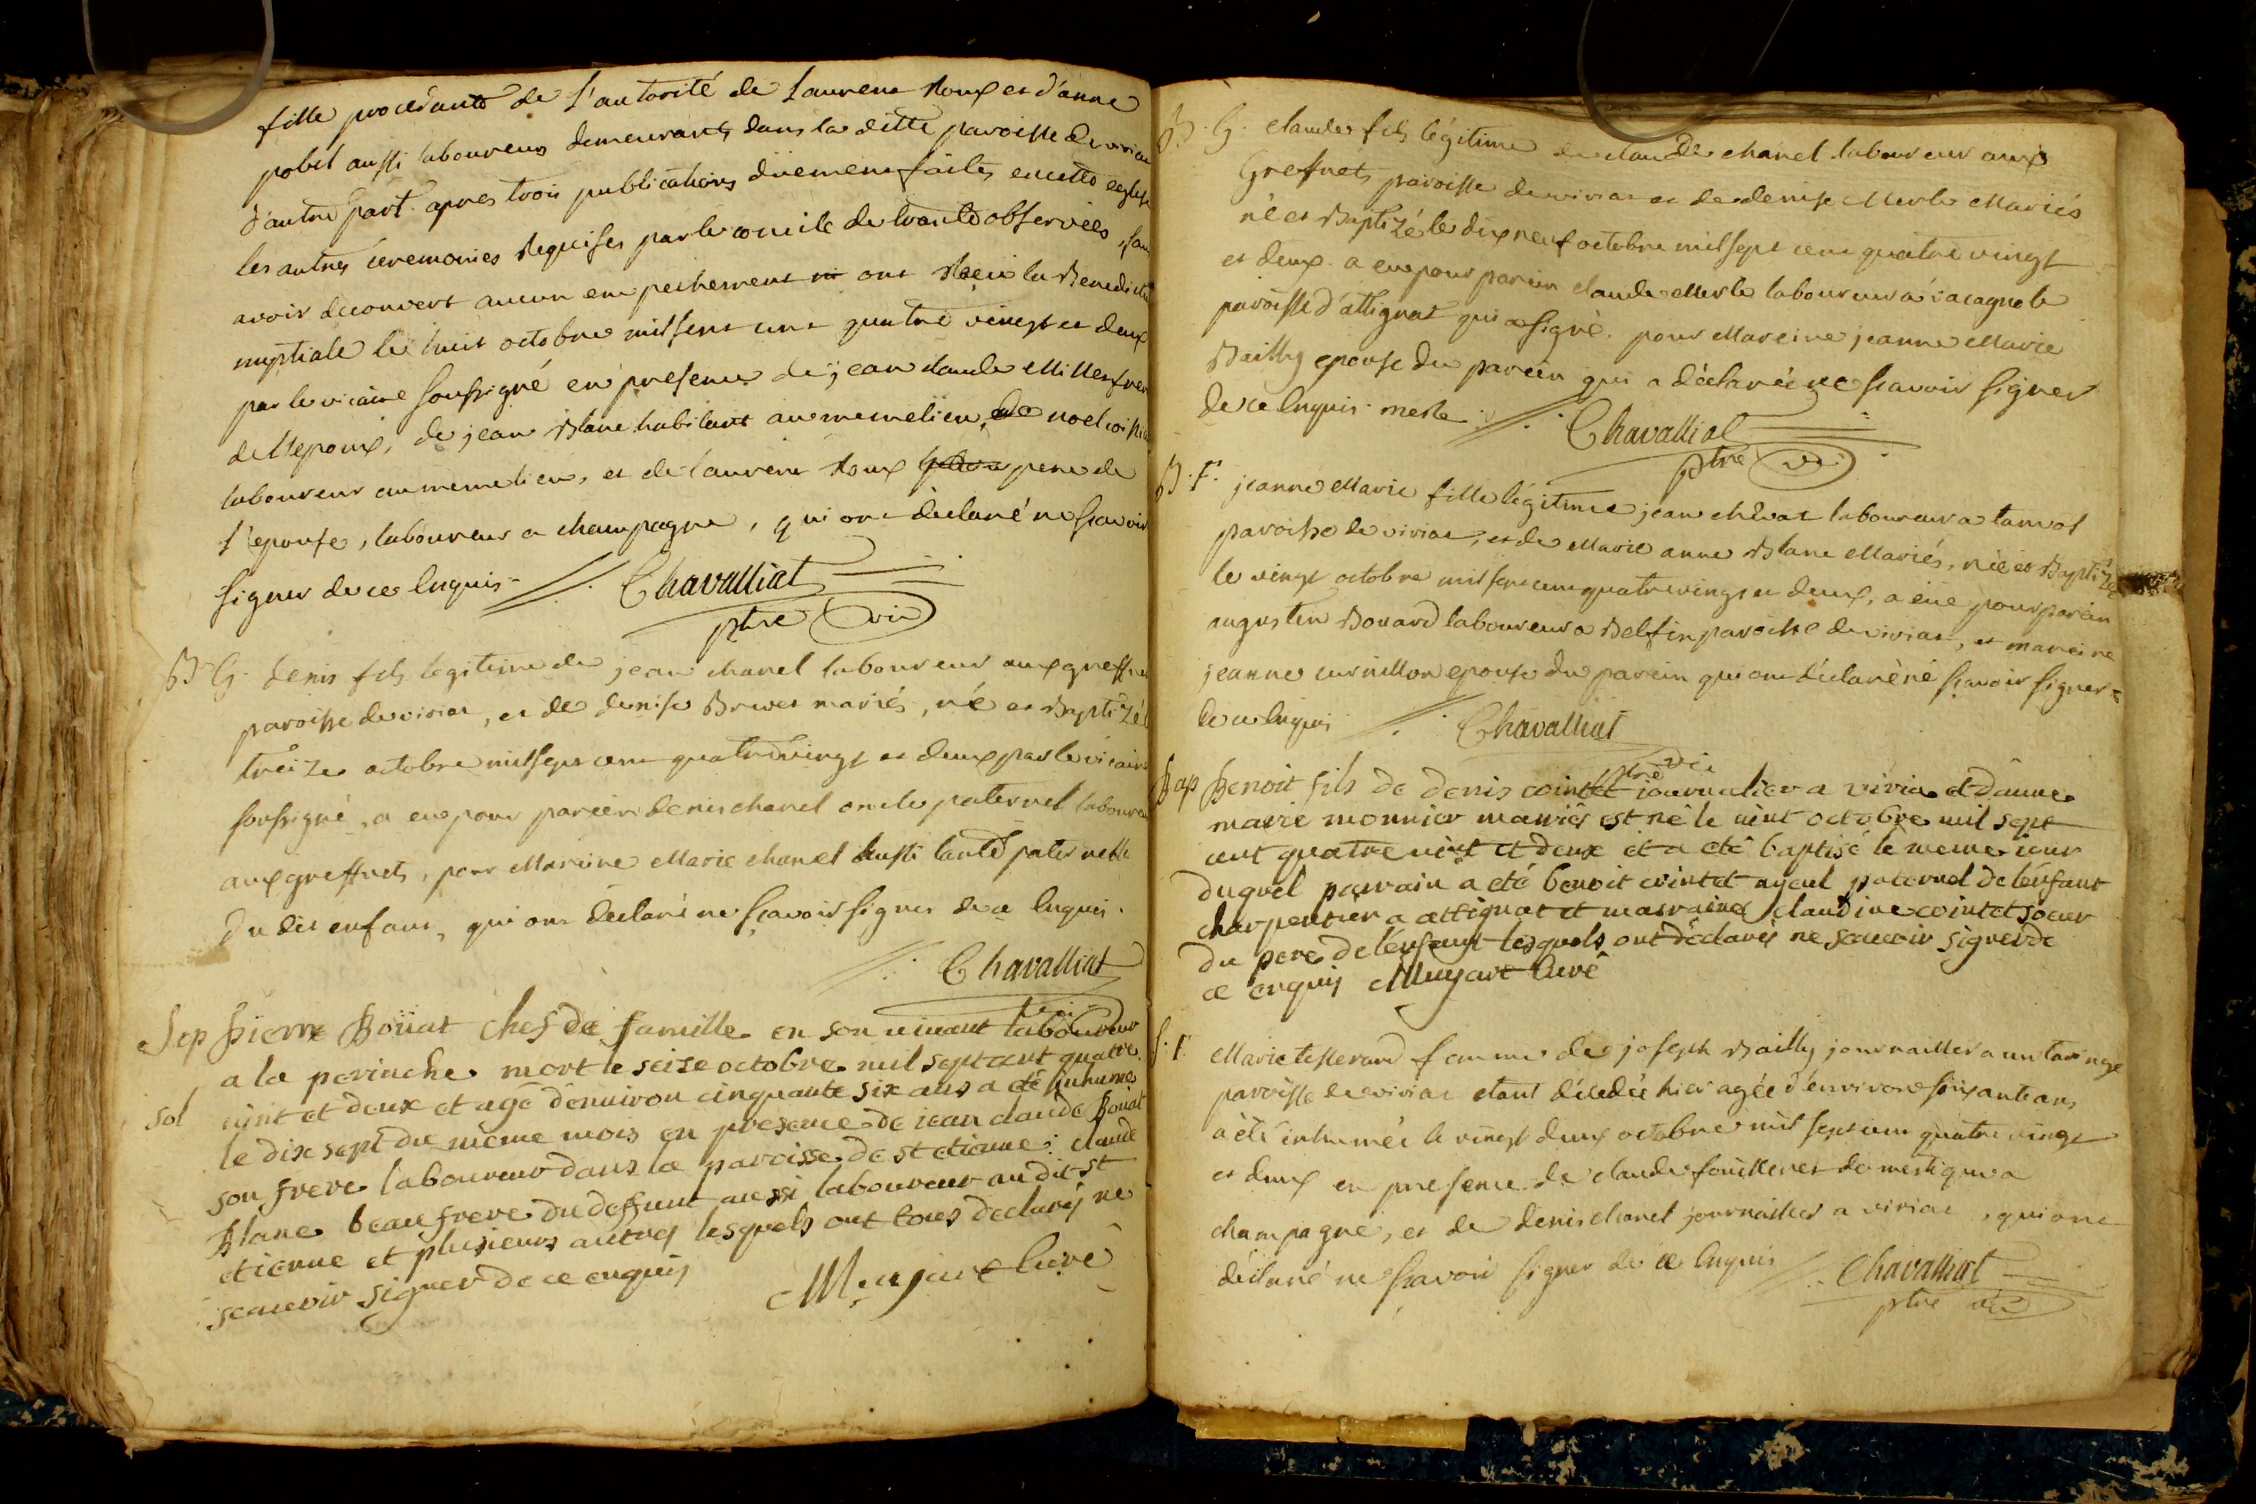 fille procedante de l'autorité de Laurent Roux et d'anne
pobel aussi laboureurs demeurants dans la ditte paroisse de viriat
d'autre part. apres trois publications düement faites en cette eglise
les autres ceremonies Requises par le concile de trante observées, sans
avoir decouvert aucun empechement ont Reçu la Benedict
nuptiale le huit octobre mil sept cent quatre vingt et deux
par le vicaire soussigné en presence de jean claude Millet frere
de l'epoux, de jean Blanc habitant au meme lieu, de noel
laboureur au meme lieu, et de laurent Roux pere de
l'epouse, laboureur a champagne, qui ont déclaré ne scavoir
signer de ce Enquis - Chavalliat
ptre vic
B G. denis fils legitime de jean chanel laboureur aux greffets
paroisse de viriat, et de denise Brevet mariés, né et Baptizé l
treize octobre mil sept cent quatre vingt et deux par le vicaire
soussigné, a eu pour parein denis chanel oncle paternel laboureur
aux greffets, pour Mareine Marie chanel aussi tante paternelle
du dit enfant, qui ont déclaré ne scavoir signer de ce Enquis.
Chavalliat
vic
Sep Pierre Boüat chef de famille en son vivant laboureur
a la perinche mort le seize octobre mil sept cent quatre
sol vint et deux et agé d'environ cinquante six ans a eté inhumé
le dix sept du même mois en presence de jean claude Bouat
son frere laboureur dans la paroisse de st etienne: claude
Blanc beaufrere du deffunt aussi laboureur au dit st
etienne et plusieurs autres lesquels ont tous declarés ne
scauoir signer de ce enquis Mujart Curé
B. G. claude fils légitime de claude chanel laboureur aux
Greffets paroisse de viriat et de denise Merle Mariés
né et Baptizé le dix neuf octobre mil sept cent quatre vingt
et deux. a eu pour parein claude Merle laboureur a cacagnole
paroisse d'attignat qui a signé. pour Mareine jeanne Marie
Bailly epouse du parein qui a déclaré ne scavoir signer
de ce Enquis. merle Chavalliat
ptre vic
B. F. jeanne Marie fille légitime jean chevat laboureur a tanvol
paroisse de viriat, et de Marie anne Blanc Mariés, née et Baptizée
le vingt octobre mil sept cent quatre vingt et deux, a eue pour parein
augustin Bouard laboureur a Belfin paroisse de viriat, et mareine
jeanne curnillon epouse du parein qui ont déclaré ne scavoir signer
de ce Enquis Chavalliat
ptre vic
Bap Benoit fils de denis cointet iournalier a viriat et d'anne
marie monnier mariés est né le vint octobre mil sept
cent quatre vint et deux et a eté baptisé le meme iour
duquel parrain a eté benoit cointet ayeul paternel de l'enfant
charpentier a attignat et marraine claudine cointet soeur
du pere de l'enfant lesquels ont déclarés ne scauoir signer de
ce enquis Mujart Curé
S. F. Marie tisserand femme de joseph Bailly journallier a
paroisse de viriat etant décédée hier agée d'environ soixante ans
a été inhumée le vingt deux octobre mil sept cent quatre vingt
et deux en presence de claude fouillenet domestique a
champagne, et de denis chanel journallier a viriat, qui ont
déclaré ne scavoir signer de ce Enquis Chavalliat
ptre vic